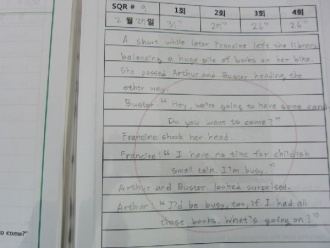 SQR # 9 1회 2회 3회 4회
월 일 31" 26" 26"
A short while later Francine left the library
balancing a huge pile of books on her bike.
She passed Arthur and Buster heading the
other way.
Buster: "Hey, we're going to have some cand
Do you want to come?"
Francine shook her head.
Francine: "I have no time for childish
small talk. I'm busy."
Arthur and Buster looked surprised.
Arthur: "I'd be busy, too, if I had all
those books. What's going on?"
to come?"